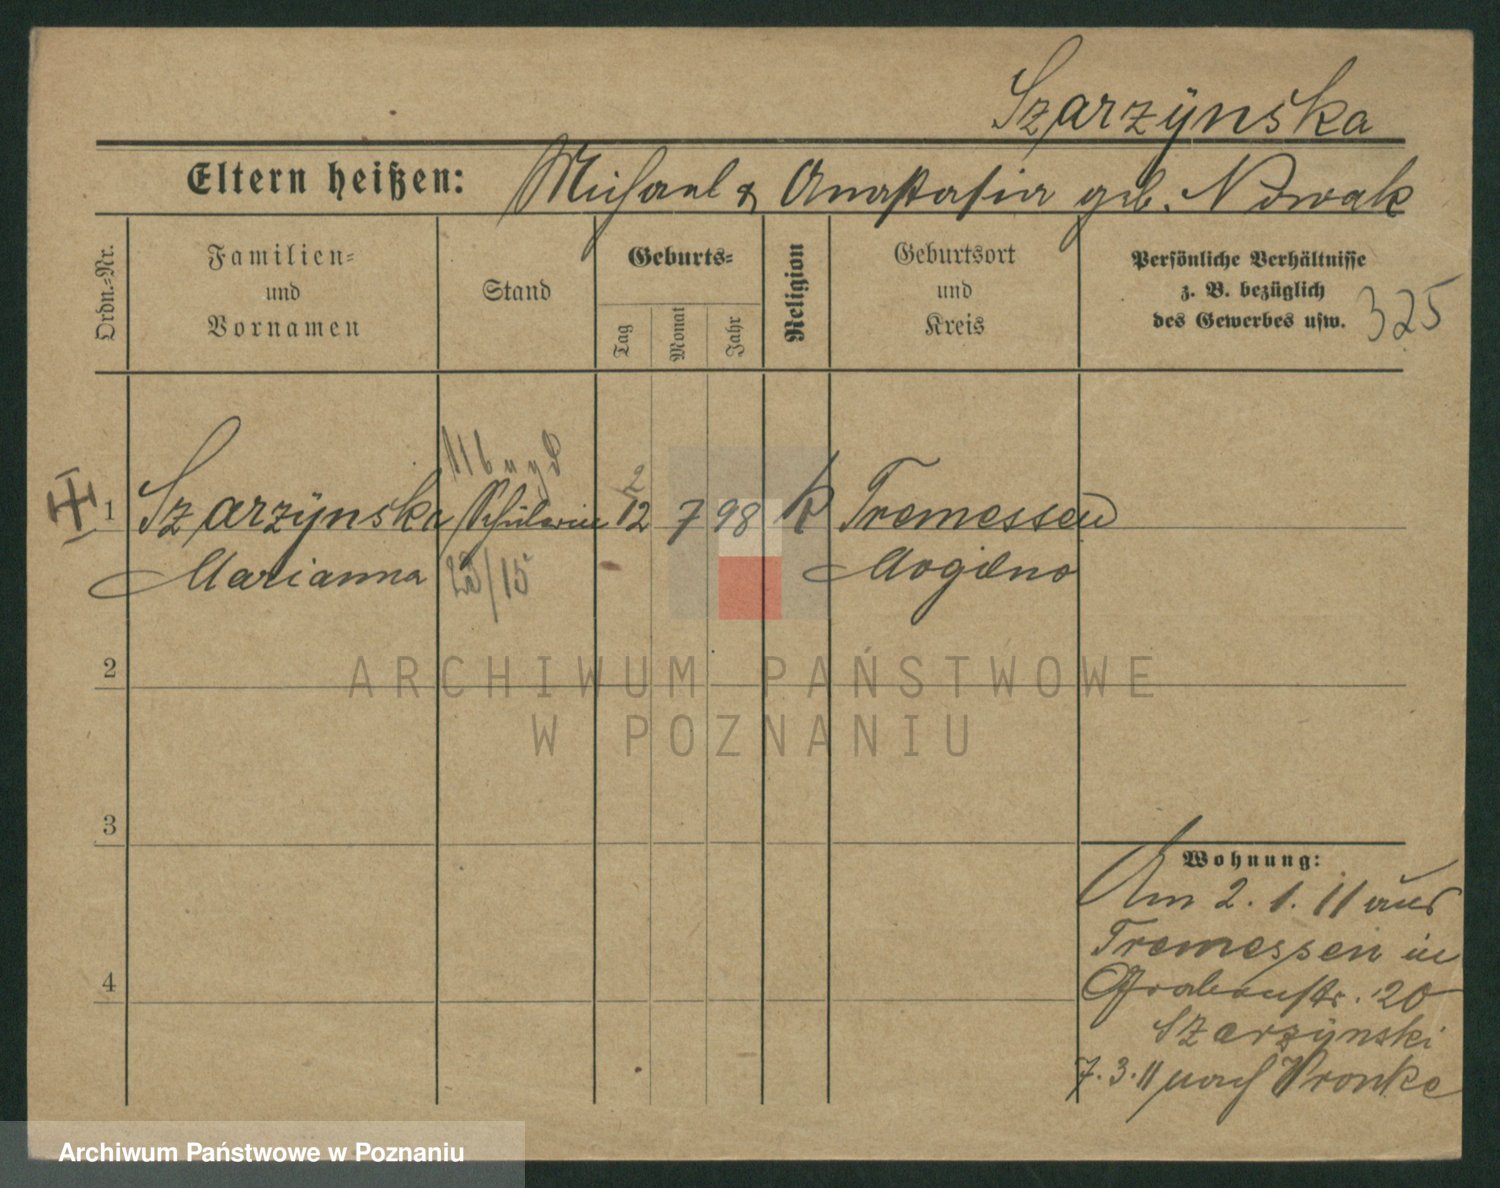 Szarzÿnska
Eltern heißen: Michael & Anastasia geb. Nowak
Ordn.-Nr.
Familien-
und
Vornamen
Stand
Geburts-
Tag
Monat
Jahr
Religion
Geburtsort
und
Kreis
Persönliche Verhältnisse
z. B. bezüglich
des Gewerbes usw.
325
2
1 Szarzÿnska Schülerin 12 7 98 k Tremessen
Marianna 23/15 Mogilno
2
ARCHIWUM PAŃSTWOWE
W POZNANIU
3
Wohnung:
Am 2.1.11 aus
Tremessen in
4
Grabenstr. 20
Szarzÿnski
7.3.11 nach Wronke
Archiwum Państwowe w Poznaniu